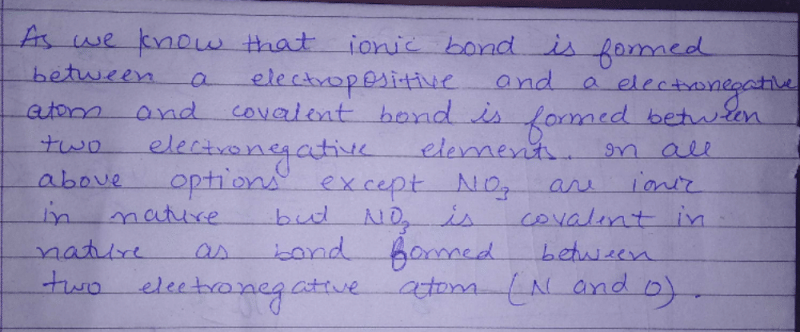 As we know that ionic bond is formed
between a electropositive and a electronegative
atom and covalent bond is formed between
two electronegative elements. In all
above options except NO₃ are ionic
in nature but NO₃ is covalent in
nature as bond formed between
two electronegative atom (N and O).